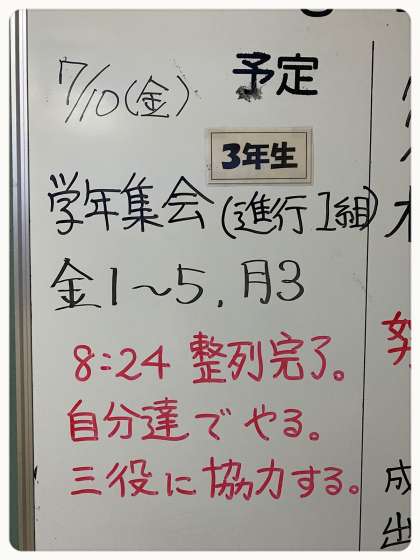 7/10(金)
予定
3年生
学年集会(進行1組)
金1〜5,月3
8:24 整列完了。
自分達でやる。
三役に協力する。
成
出